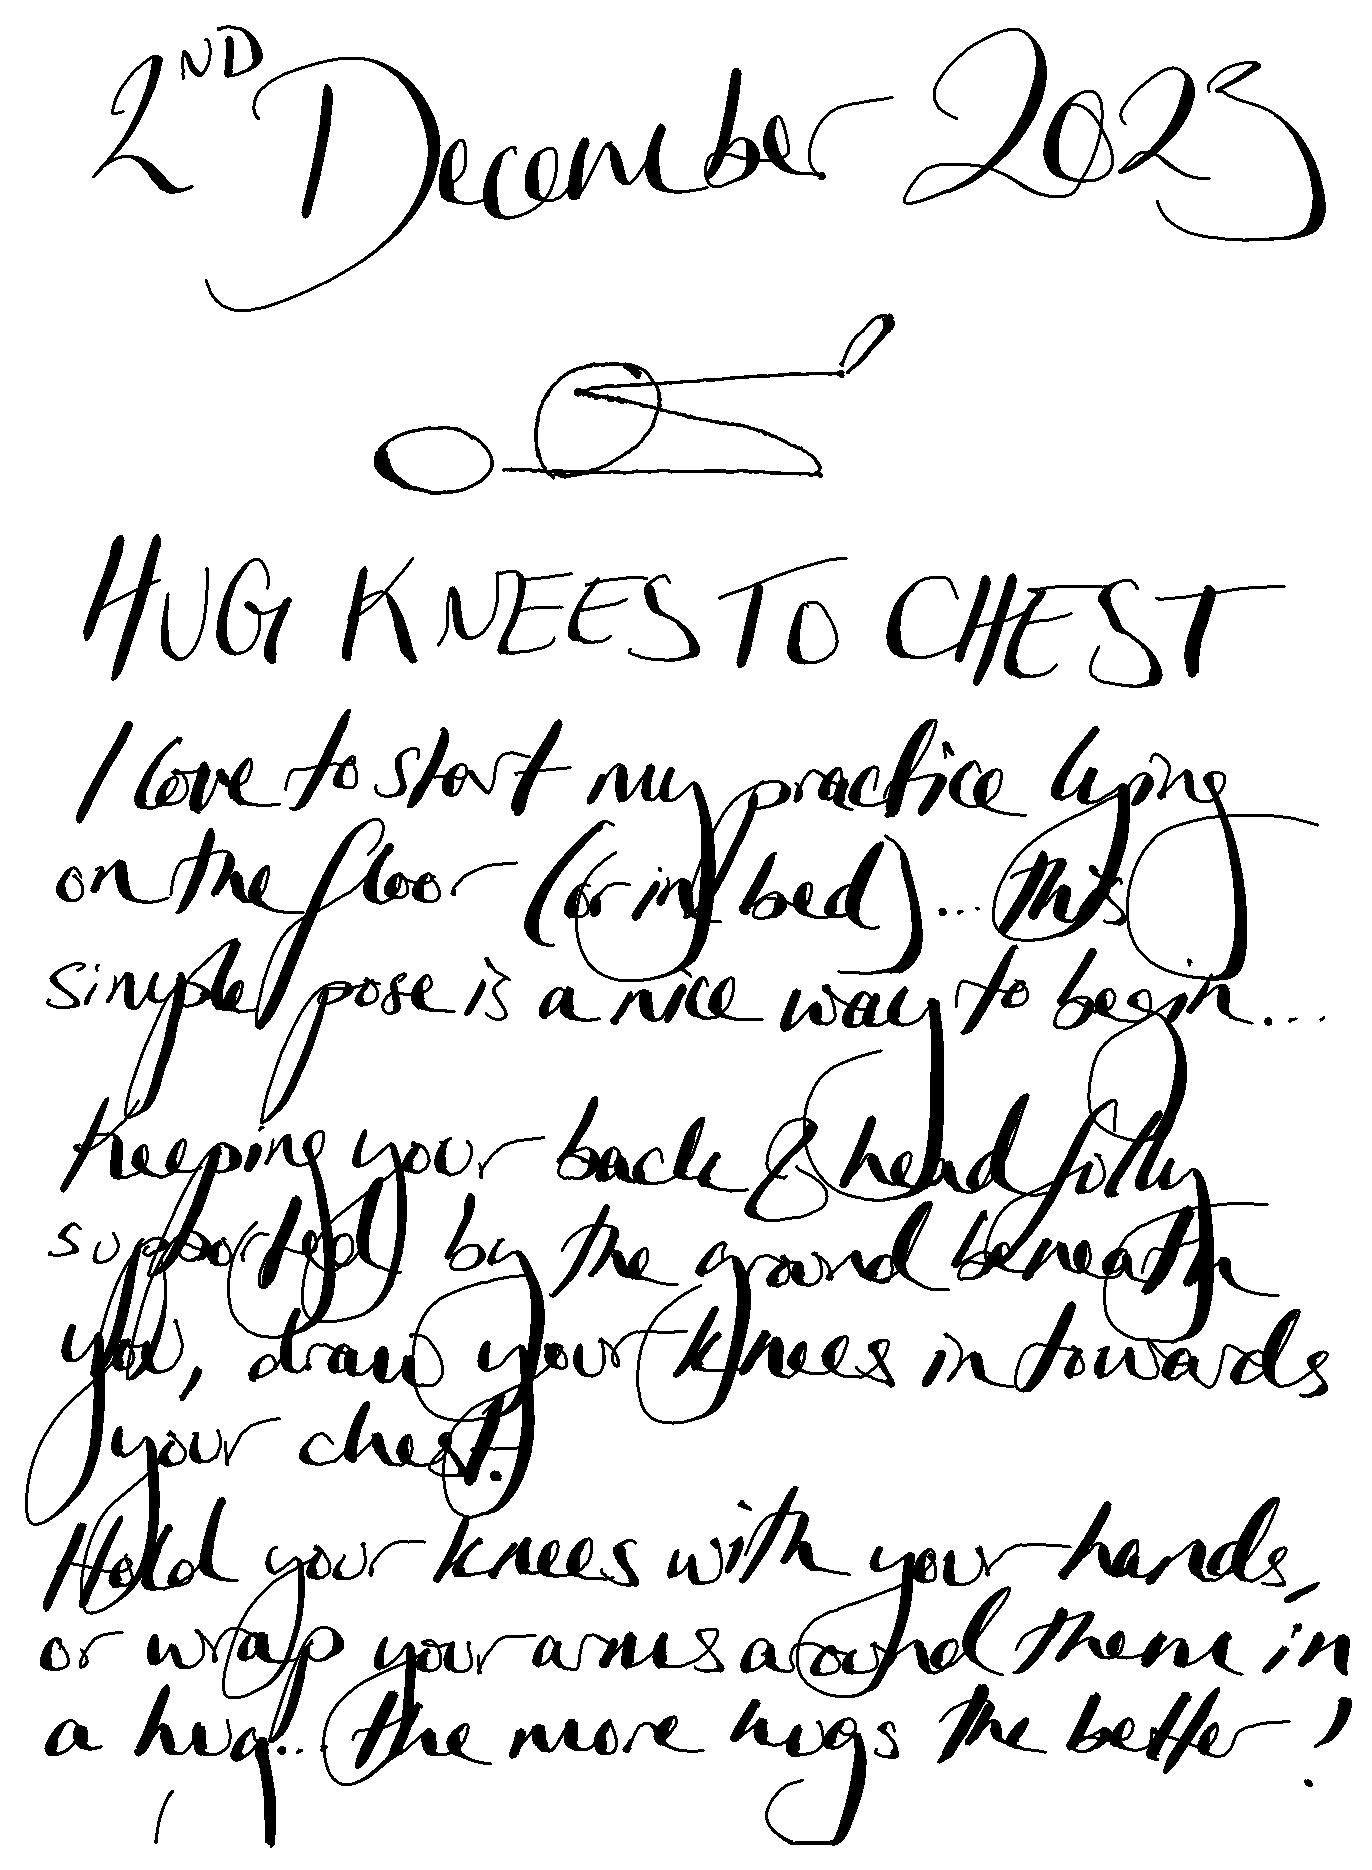 2ND December 2023
HUG KNEES TO CHEST
I love to start my practice lying
on the floor (or in bed)... this
simple pose is a nice way to begin...
Keeping your back & head fully
supported by the ground beneath
you, draw your knees in towards
your chest.
Hold your knees with your hands,
or wrap your arms around them in
a hug... the more hugs the better!